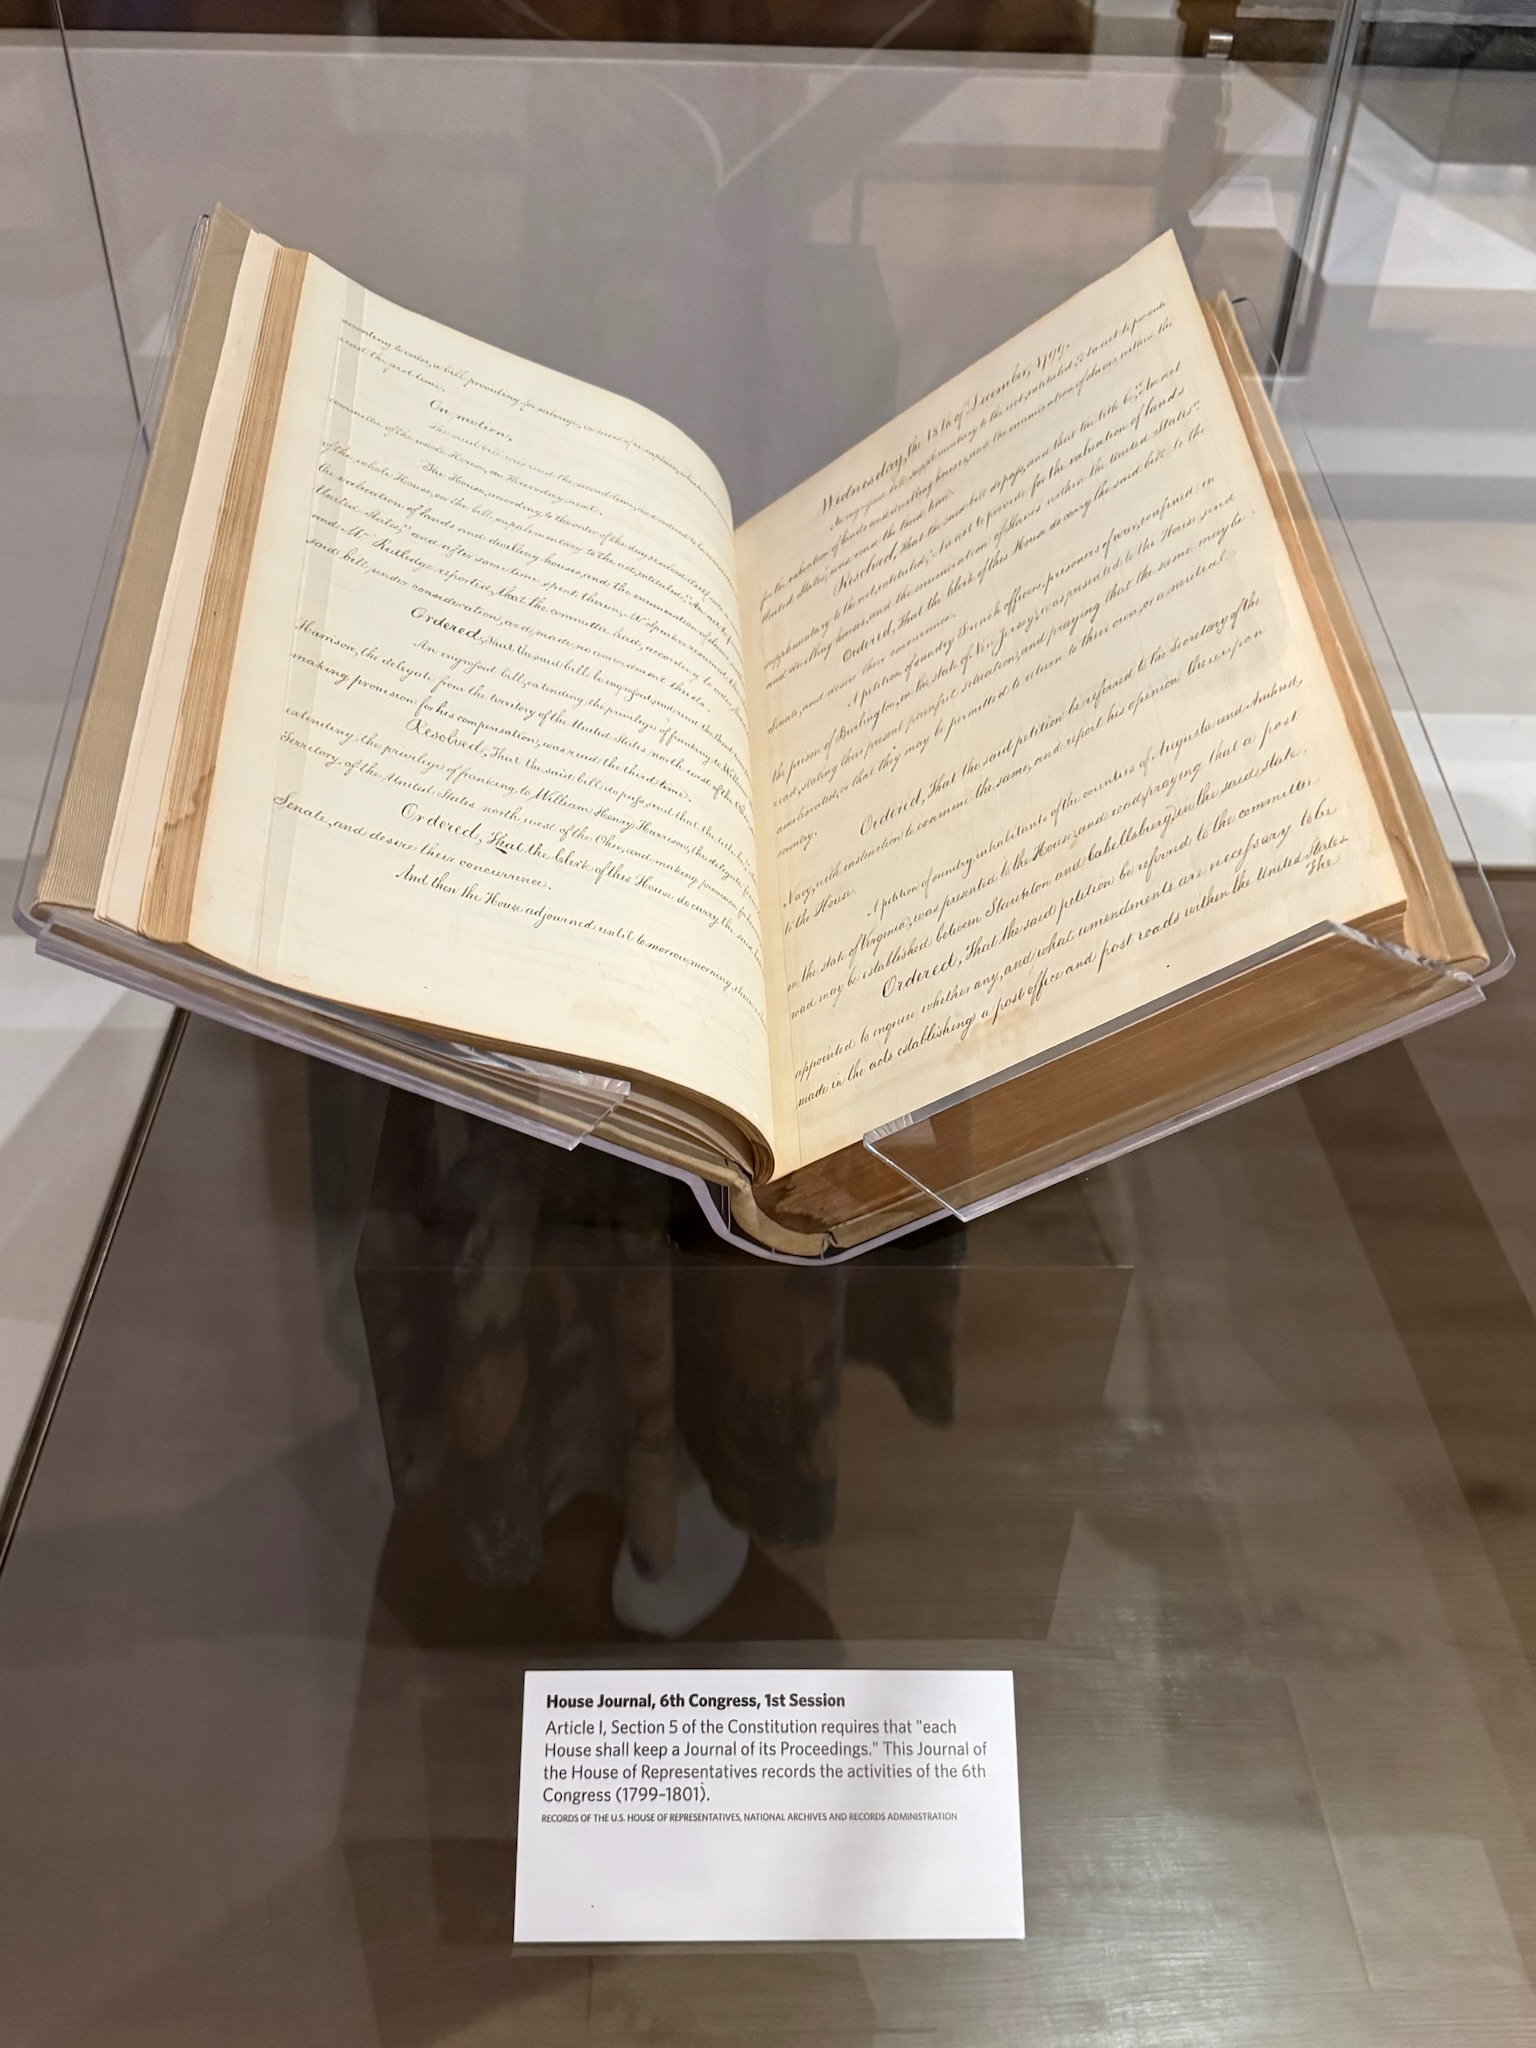 according to order, a bill providing for salvage, in cases of re-capture, which was
read the first time.
On motion,
The said bill was read the second time, and ordered to be
committee of the whole House, on Thursday next.
The House, according to the order of the day, resolved itself into a
of the whole House, on the bill, supplementary to the act, intituled, "An act to
the valuation of lands and dwelling houses, and the enumeration of slaves
United States;" and after some time spent therein, Mr Speaker resumed the
and Mr Rutledge reported, that the committee had, according to order, had
said bill, under consideration, and made no amendment thereto.
Ordered, That the said bill be engrossed, and read the third time
An engrossed bill, extending the privilege of franking to William
Harrison, the delegate from the territory of the United States north west of the Ohio
making provision for his compensation, was read the third time.
Resolved, That the said bill do pass, and that the title be,
extending the privilege of franking to William Henry Harrison, the delegate from
Territory of the United States north west of the Ohio, and making provision for his
Ordered, That the Clerk of this House do carry the said bill
Senate, and desire their concurrence.
And then the House adjourned until to-morrow morning
Wednesday, the 18th of December, 1799.
An engrossed bill, supplementary to the act, intituled, "An act to provide
for the valuation of lands and dwelling houses, and the enumeration of slaves within the
United States," was read the third time.
Resolved, That the said bill do pass, and that the title be, "An act
supplementary to the act, intituled, "An act to provide for the valuation of lands
and dwelling houses, and the enumeration of Slaves within the United States."
Ordered, That the Clerk of this House do carry the said bill to the
Senate, and desire their concurrence.
A petition of sundry French officers, prisoners of war, confined in
the prison of Burlington, in the state of New Jersey, was presented to the House and
read, stating their present painful situation, and praying that the same may be
ameliorated, or that they may be permitted to return to their own, or a neutral
country.
Ordered, That the said petition be referred to the Secretary of the
Navy, with instruction to examine the same, and report his opinion thereupon
to the House.
A petition of sundry inhabitants of the counties of Augusta and Amherst,
in the state of Virginia, was presented to the House and read, praying that a post
road may be established between Staunton and Cabellsburg, in the said state.
Ordered, That the said petition be referred to the committee
appointed to enquire whether any, and what amendments are necessary to be
made in the acts establishing a post office and post roads within the United States
The
House Journal, 6th Congress, 1st Session
Article I, Section 5 of the Constitution requires that "each
House shall keep a Journal of its Proceedings." This Journal of
the House of Representatives records the activities of the 6th
Congress (1799–1801).
RECORDS OF THE U.S. HOUSE OF REPRESENTATIVES, NATIONAL ARCHIVES AND RECORDS ADMINISTRATION